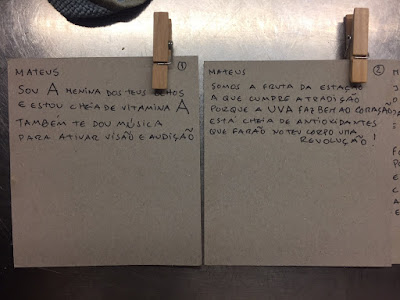 MATEUS
1
SOU A MENINA DOS TEUS OLHOS
E ESTOU CHEIA DE VITAMINA A
TAMBÉM TE DOU MÚSICA
PARA ATIVAR VISÃO E AUDIÇÃO
MATEUS
2
SOMOS A FRUTA DA ESTAÇÃO
A QUE CUMPRE A TRADIÇÃO
PORQUE A UVA FAZ BEM AO CORAÇÃO
ESTÁ CHEIA DE ANTIOXIDANTES
QUE FARÃO NO TEU CORPO UMA
REVOLUÇÃO!